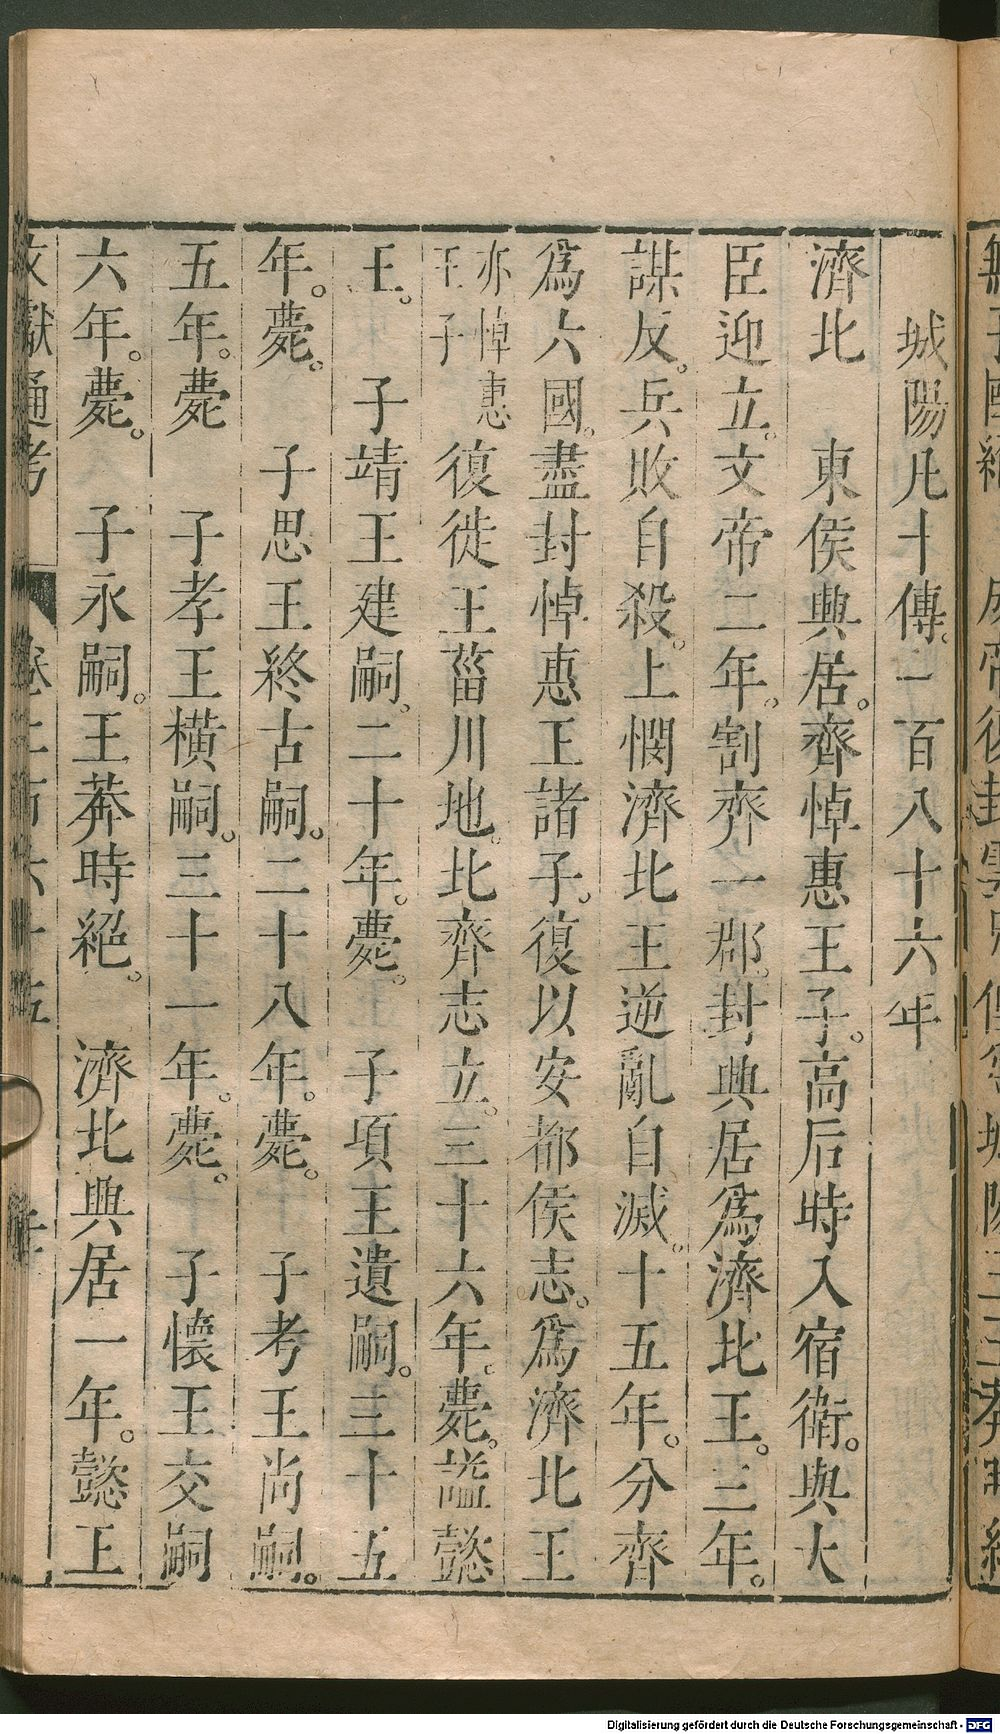 城陽凡十傳一百八十六年
濟北　東侯興居。齊悼惠王子。高后時入宿衛。與大
臣迎立。文帝二年。割齊一郡。封興居爲濟北王。三年。
謀反。兵敗自殺。上憫濟北王逆亂自滅。十五年。分齊
爲六國。盡封悼惠王諸子。復以安都侯志。爲濟北王
亦悼惠
王子
復徙王菑川地。北齊志立。三十六年。薨。謚懿
王。　子靖王建嗣。二十年。薨。　子項王遺嗣。三十五
年。薨。　子思王終古嗣。二十八年。薨。　子考王尚嗣。
五年。薨　子孝王橫嗣。三十一年。薨。　子懷王交嗣
六年。薨。　子永嗣。王莽時絕。　濟北興居一年。懿王
文獻通考　卷二百六十五
Digitalisierung gefördert durch die Deutsche Forschungsgemeinschaft - DFG